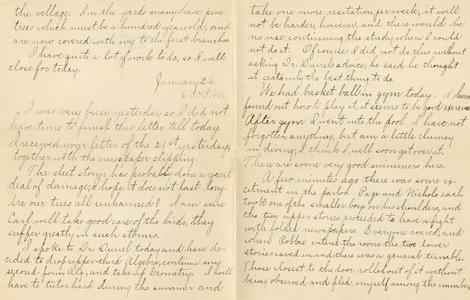 the village. In the yards many have pine
trees which must be a hundred years old, and
are now covered with ivy to the first branches.
I have quite a lot of work to do, so I will
close for today.
January 26.
6 P.M.
I was very busy yesterday so I did not
have time to finish this letter till today.
I received your letter of the 21st yesterday,
together with the newspaper clipping.
The sleet storm has probably done a great
deal of damage; I hope it does not last long.
Are our trees all unharmed? I am sure
Carl will take good care of the birds, they
suffer greatly in such storms.
I spoke to Dr. today and have de-
cided to drop upper-third Algebra, continue my
second form Alg. and take up Geometry. I will
have to tutor hard during the summer and
take one more recitation per week, it will
not be harder, however, and there would be
no use continuing the study when I could
not do it. Of course I did not do this without
asking Dr. advice, he said he thought
it certainly the best thing to do.
We had basket ball in gym today. I have
found out how to play it, it seems to be good exercise.
After gym I went into the pool. I have not
forgotten anything, but am a little clumsy
in diving; I think I will soon get over it.
There are some very good swimmers here.
A few minutes ago there was some ex-
citement in the parlor. Page and Nichols each
took one of the smaller boys on his shoulder, and
the two upper stories proceeded to have a fight
with folded newspapers. Everyone roared, and
when Robbie entered the room the two lower
stories caved in and there was a general tumble.
Those closest to the door rolled out of it without
being observed and fled, myself among the number.